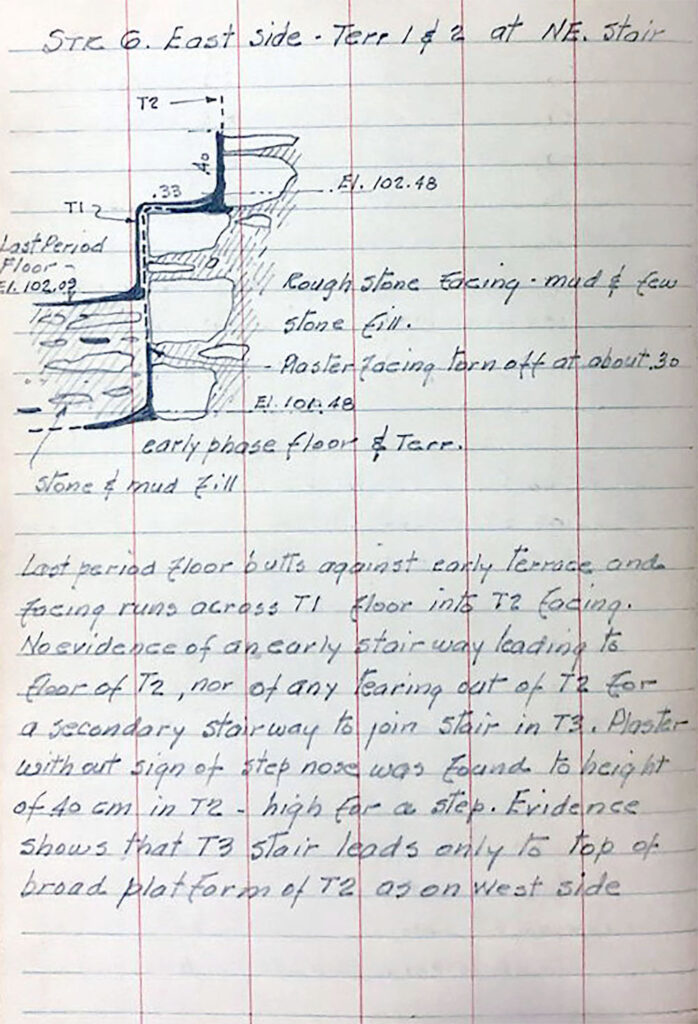 Str 6. East side - Terr 1 & 2 at NE. Stair
T2
.40
.33
El. 102.48
T1
Last Period
Floor -
El. 102.09
Rough stone facing - mud & few
stone fill.
- Plaster facing torn off at about .30
El. 101.48
early phase floor & Terr.
stone & mud fill
Last period floor butts against early terrace and
facing runs across T1 floor into T2 facing.
No evidence of an early stairway leading to
floor of T2, nor of any tearing out of T2 for
a secondary stairway to join stair in T3. Plaster
without sign of step nose was found to height
of 40 cm in T2 - high for a step. Evidence
shows that T3 stair leads only to top of
broad platform of T2 as on west side